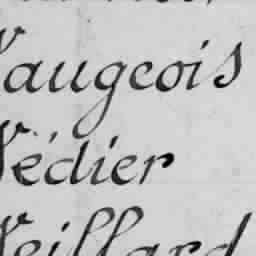 Vaugeois
Védier
Veillard